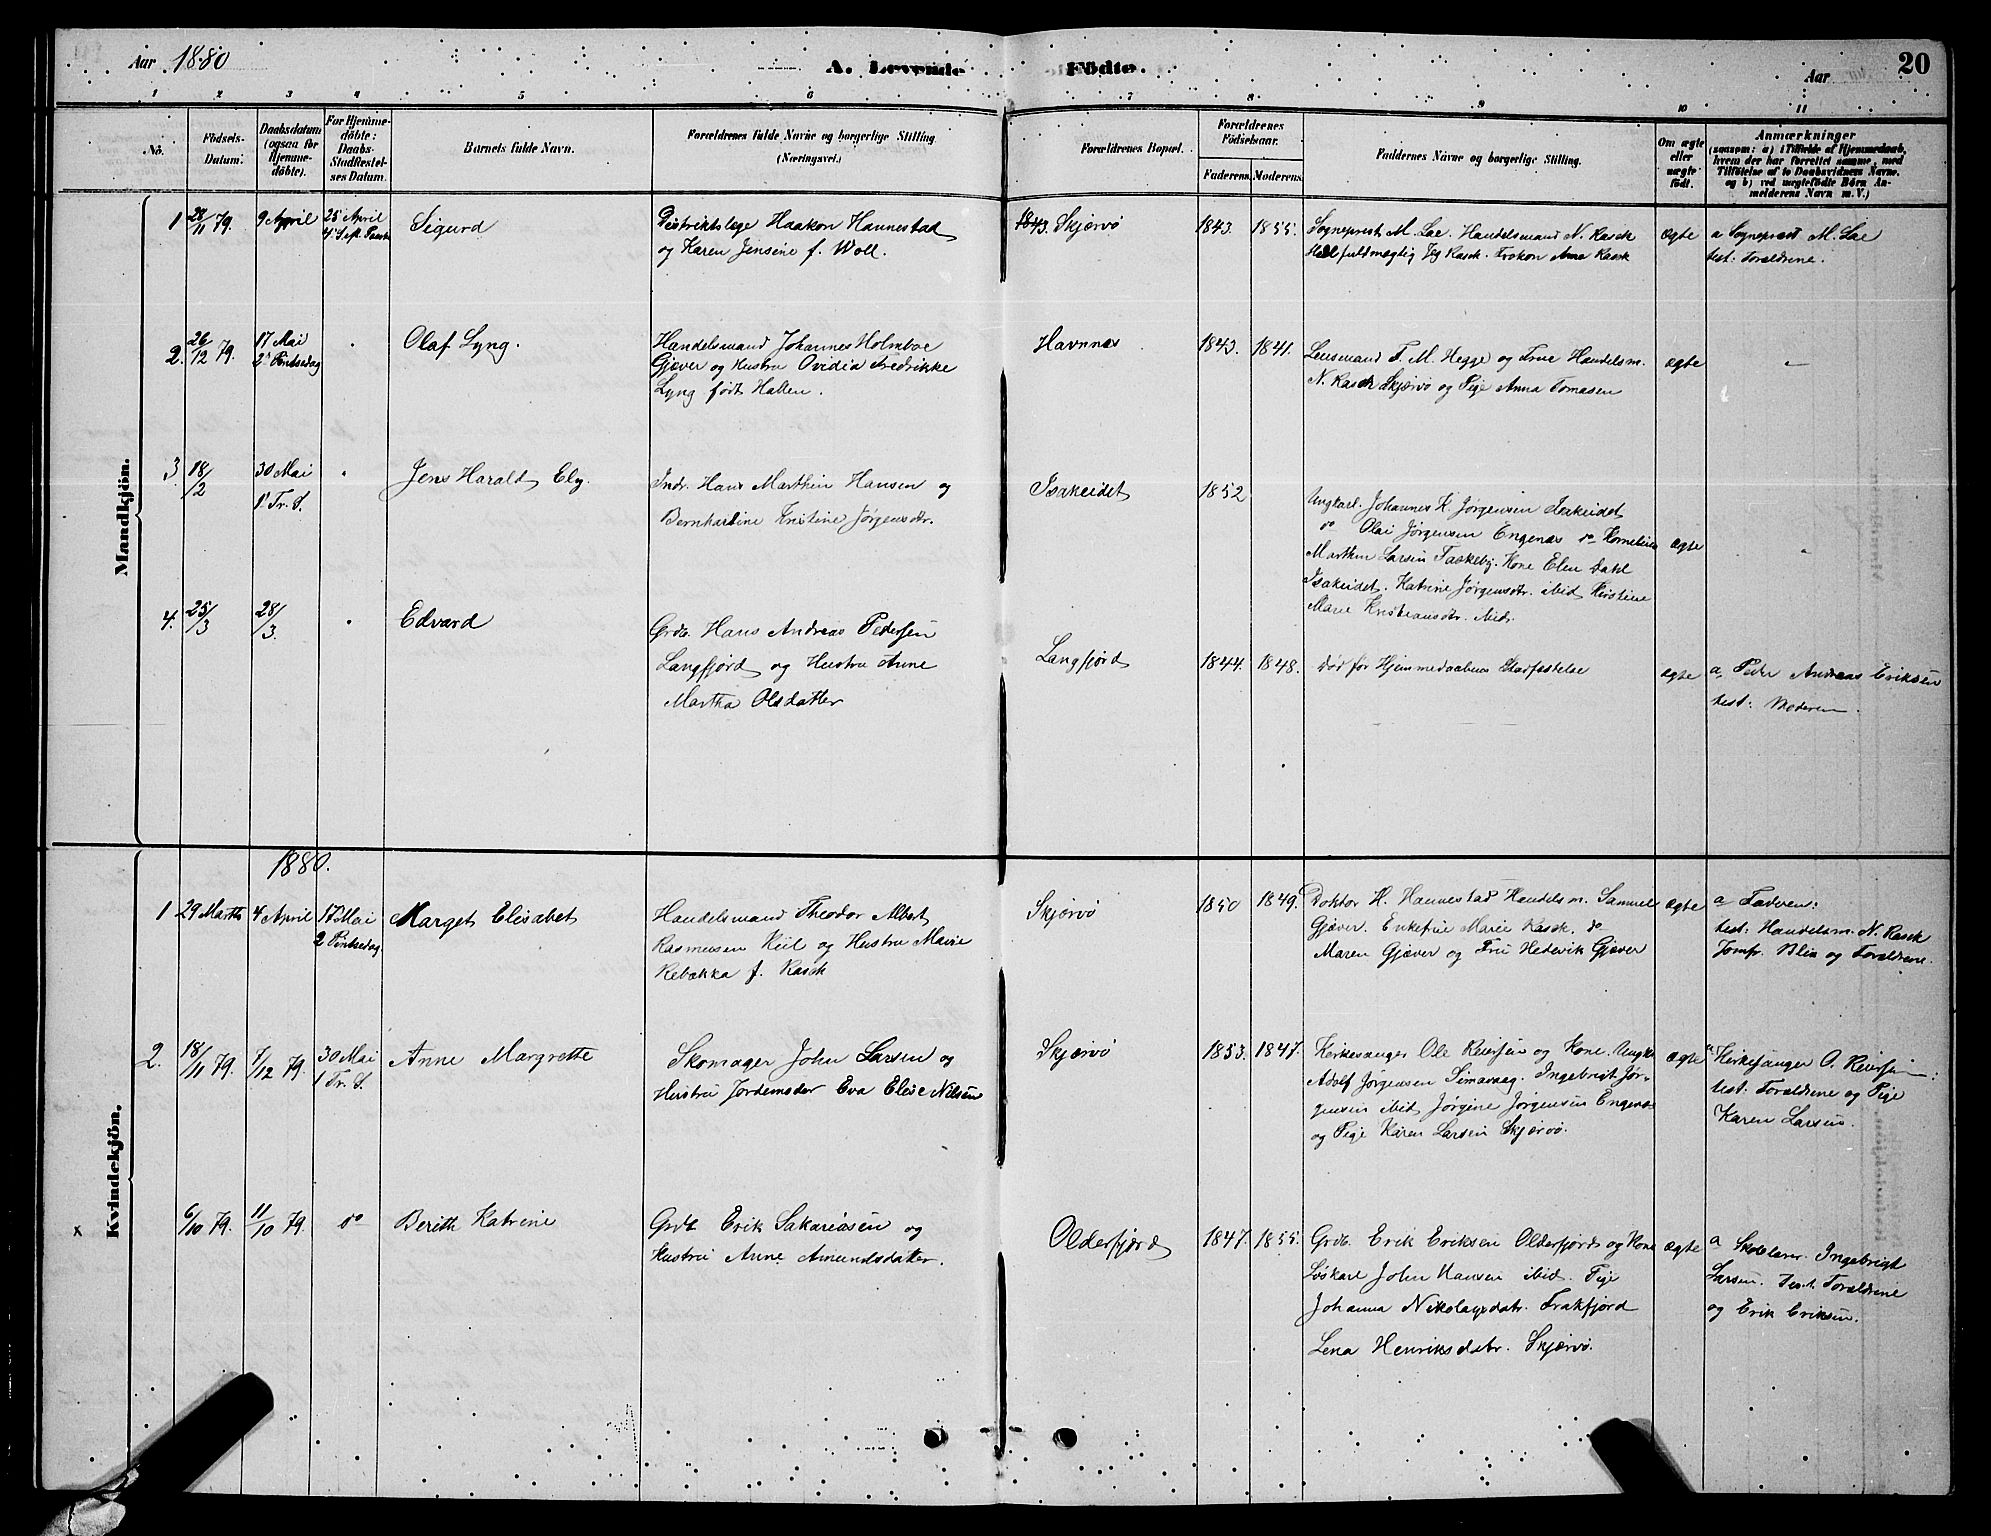 Aar 1880
A. Levende Födte.
Aar
20
1 2 3 4 5 6 7 8 9 10 11
No.
Födsels-Datum.
Daabsdatum (ogsaa for Hjemmedøbte).
For Hjemmedöbte: Daabs-Stadfæstelses Datum.
Barnets fulde Navn.
Forældrenes fulde Navne og borgerlige Stilling (Næringsvei.)
Forældrenes Bopæl.
Forældrenes Födselsaar.
Faderens. Moderens.
Faddernes Navne og borgerlige Stilling.
Om ægte eller uægte födt.
Anmærkninger
(saasom: a) i Tilfælde af Hjemmedaab, hvem der har forrettet samme, med Tilföielse af to Daabsvidners Navne. og b) ved uægtefödte Börn Anmelderens Navn m. V.)
Mandkjön.
1 28/11 79. 9 April 25 April
4 S. eft. Paaske
Sigurd
Distriktslæge Haakon Hannestad
og Karen Jensine f. Woll.
1843. Skjærvø
1843. 1855.
Sogneprest M. Lae. Handelsmand N. Rasch
Handelsfuldmægtig Jæg Rasch. Frøken Anna Rasch
ægte
a Sogneprest M. Lae
test: Forældrene.
2. 26/12 79. 17 Mai
2' Pintsedag
Olaf Lyng.
Handelsmand Johannes Holmboe
Gjæver og Hustru Ovidia Fredrikke
Lyng født Halten.
Havnnes
1843. 1841.
Lensmand F. M. Hegge og Frue Handelsm.
N. Rasch Skjærvø og Pige Anna Tomasen
ægte
3 18/2 30 Mai
1' Tr. S.
Jens Harald Ely.
Indr. Hans Marthin Hansen og
Bernhardine Kristine Jørgensdtr.
Isakeidet
1852
Ungkarl. Johannes K. Jørgensen Isakeidet
do Olai Jørgensen Engenæs do Kornelius
Marthin Larsen Taskeby. Kone Elen Dahl
Isakeidet. Katrine Jørgensdtr. ibid Kirstine
Marie Kristiansdtr. ibid.
ægte
4. 25/3 28/3.
Edvard
Grdb. Hans Andreas Pedersen
Langfjord og Hustru Anne
Martha Olsdatter
Langfjord
1844. 1848.
Død før Hjemmedaabens Stadfæstelse
ægte
a, Peder Andreas Eriksen
test: Moderen.
Kvindekjön.
1880.
1 29 Marts 4 April 17 Mai
2 Pintsedag
Marget Elisabet
Handelsmand Theodor Albert
Rasmussen Keil og Hustru Marie
Rebakka f. Rasch
Skjærvø
1850 1849.
Doktor H. Hannestad Handelsm. Samuel
Gjæver. Enkefru Marie Rasch. do
Maren Gjæver og Fru Hedevik Gjæver
ægte
a Faderen:
test: Handelsm. N. Rasch
Jomfr. Blix og Forældrene.
2. 18/11 79. 7/12 79. 30 Mai
1 Tr. S.
Anne Margrethe
Skomager John Larsen og
Hustru Jordemoder Eva Elise Nilsen
Skjærvø
1853. 1847.
Kirkesanger Ole Reiersen og Kone. Ungk.
Adolf Jørgensen Simavaag. Ingebrigt Jør-
gensen ibid Jørgine Jørgensen Engenæs
og Pige Karen Larsen Skjærvø.
ægte
a Kirkesanger O. Reiersen:
test: Forældrene og Pige
Karen Larsen.
x 6/10 79. 11/10 79. do
Berith Katrine
Grdb. Erik Sakariasen og
Hustru Anne Amundsdatter.
Olderfjord
1847. 1855.
Grdb. Erik Eriksen Olderfjord og Kone
Løskarl John Hansen ibid. Pige
Johanna Nikolaysdatr. Frakfjord
Lena Henriksdatr. Skjærvø.
ægte
a Skolelærer Ingebrigt
Larsen. Test. Forældrene
og Erik Eriksen.